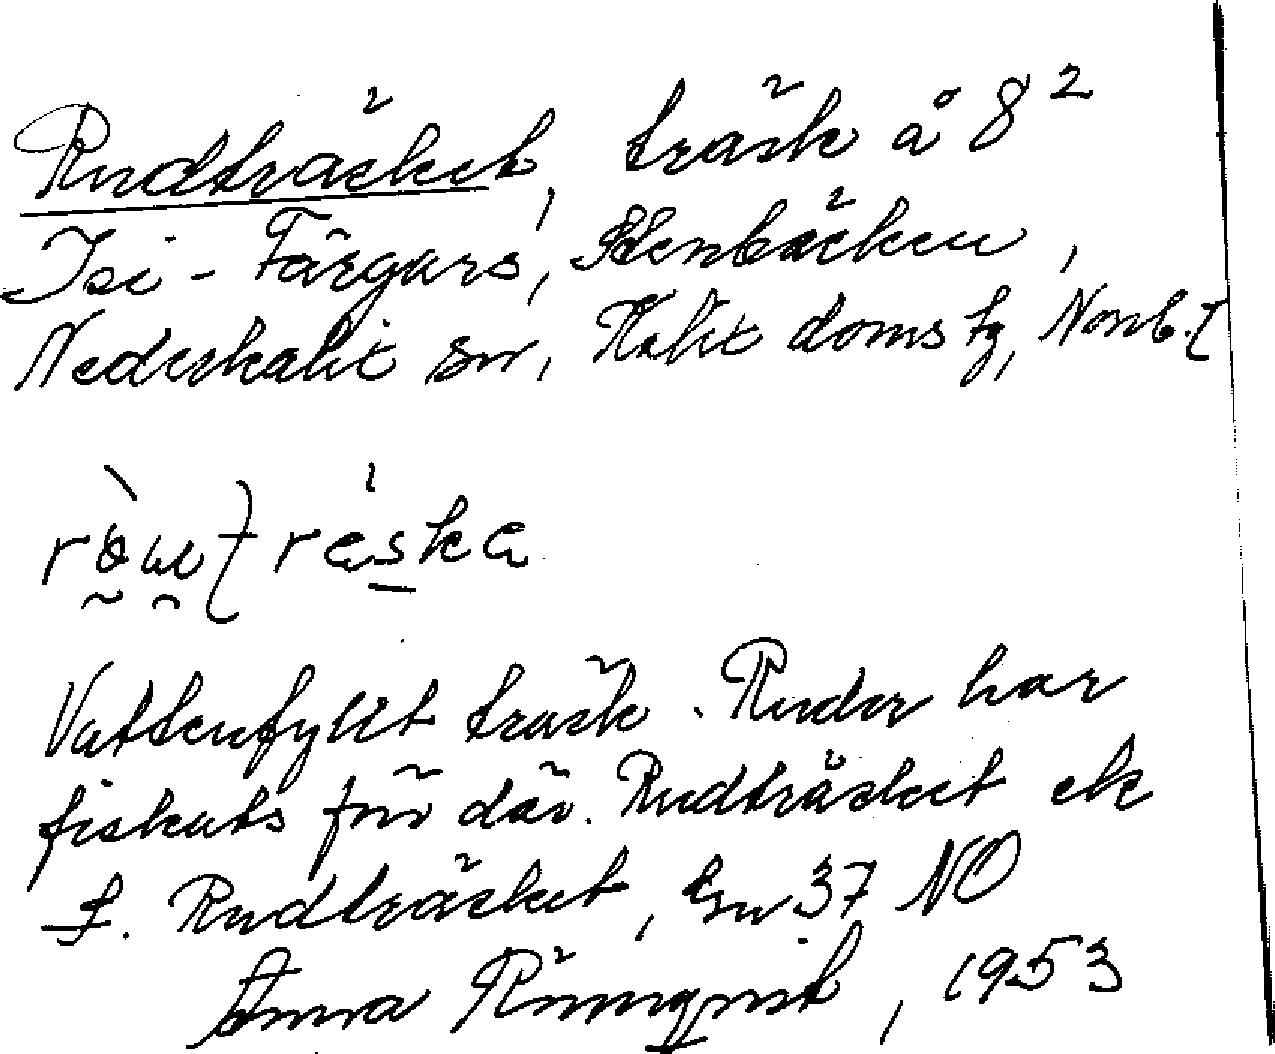 Rudträsket, träsk å 8²
Isi-Färgars, Stenbäcken,
Nederkalix sn, Kalix doms tg, Nonb. l
ròu̯träska
Vattenfyllt träsk. Rudor har
fiskats förr där. Rudträsket ek
f. Rudträsket, Gsn 37 NO
Anna Rönnqvist, 1953